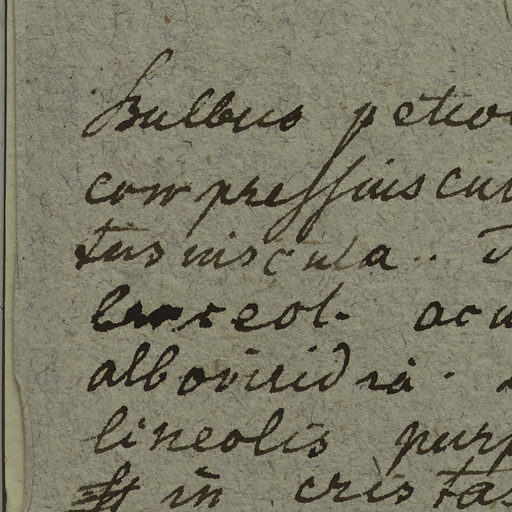 Bulbus petio
compressiuscu
tusiuscula..
lanceol. acu
alboviridia.
lineolis purp
in cristas